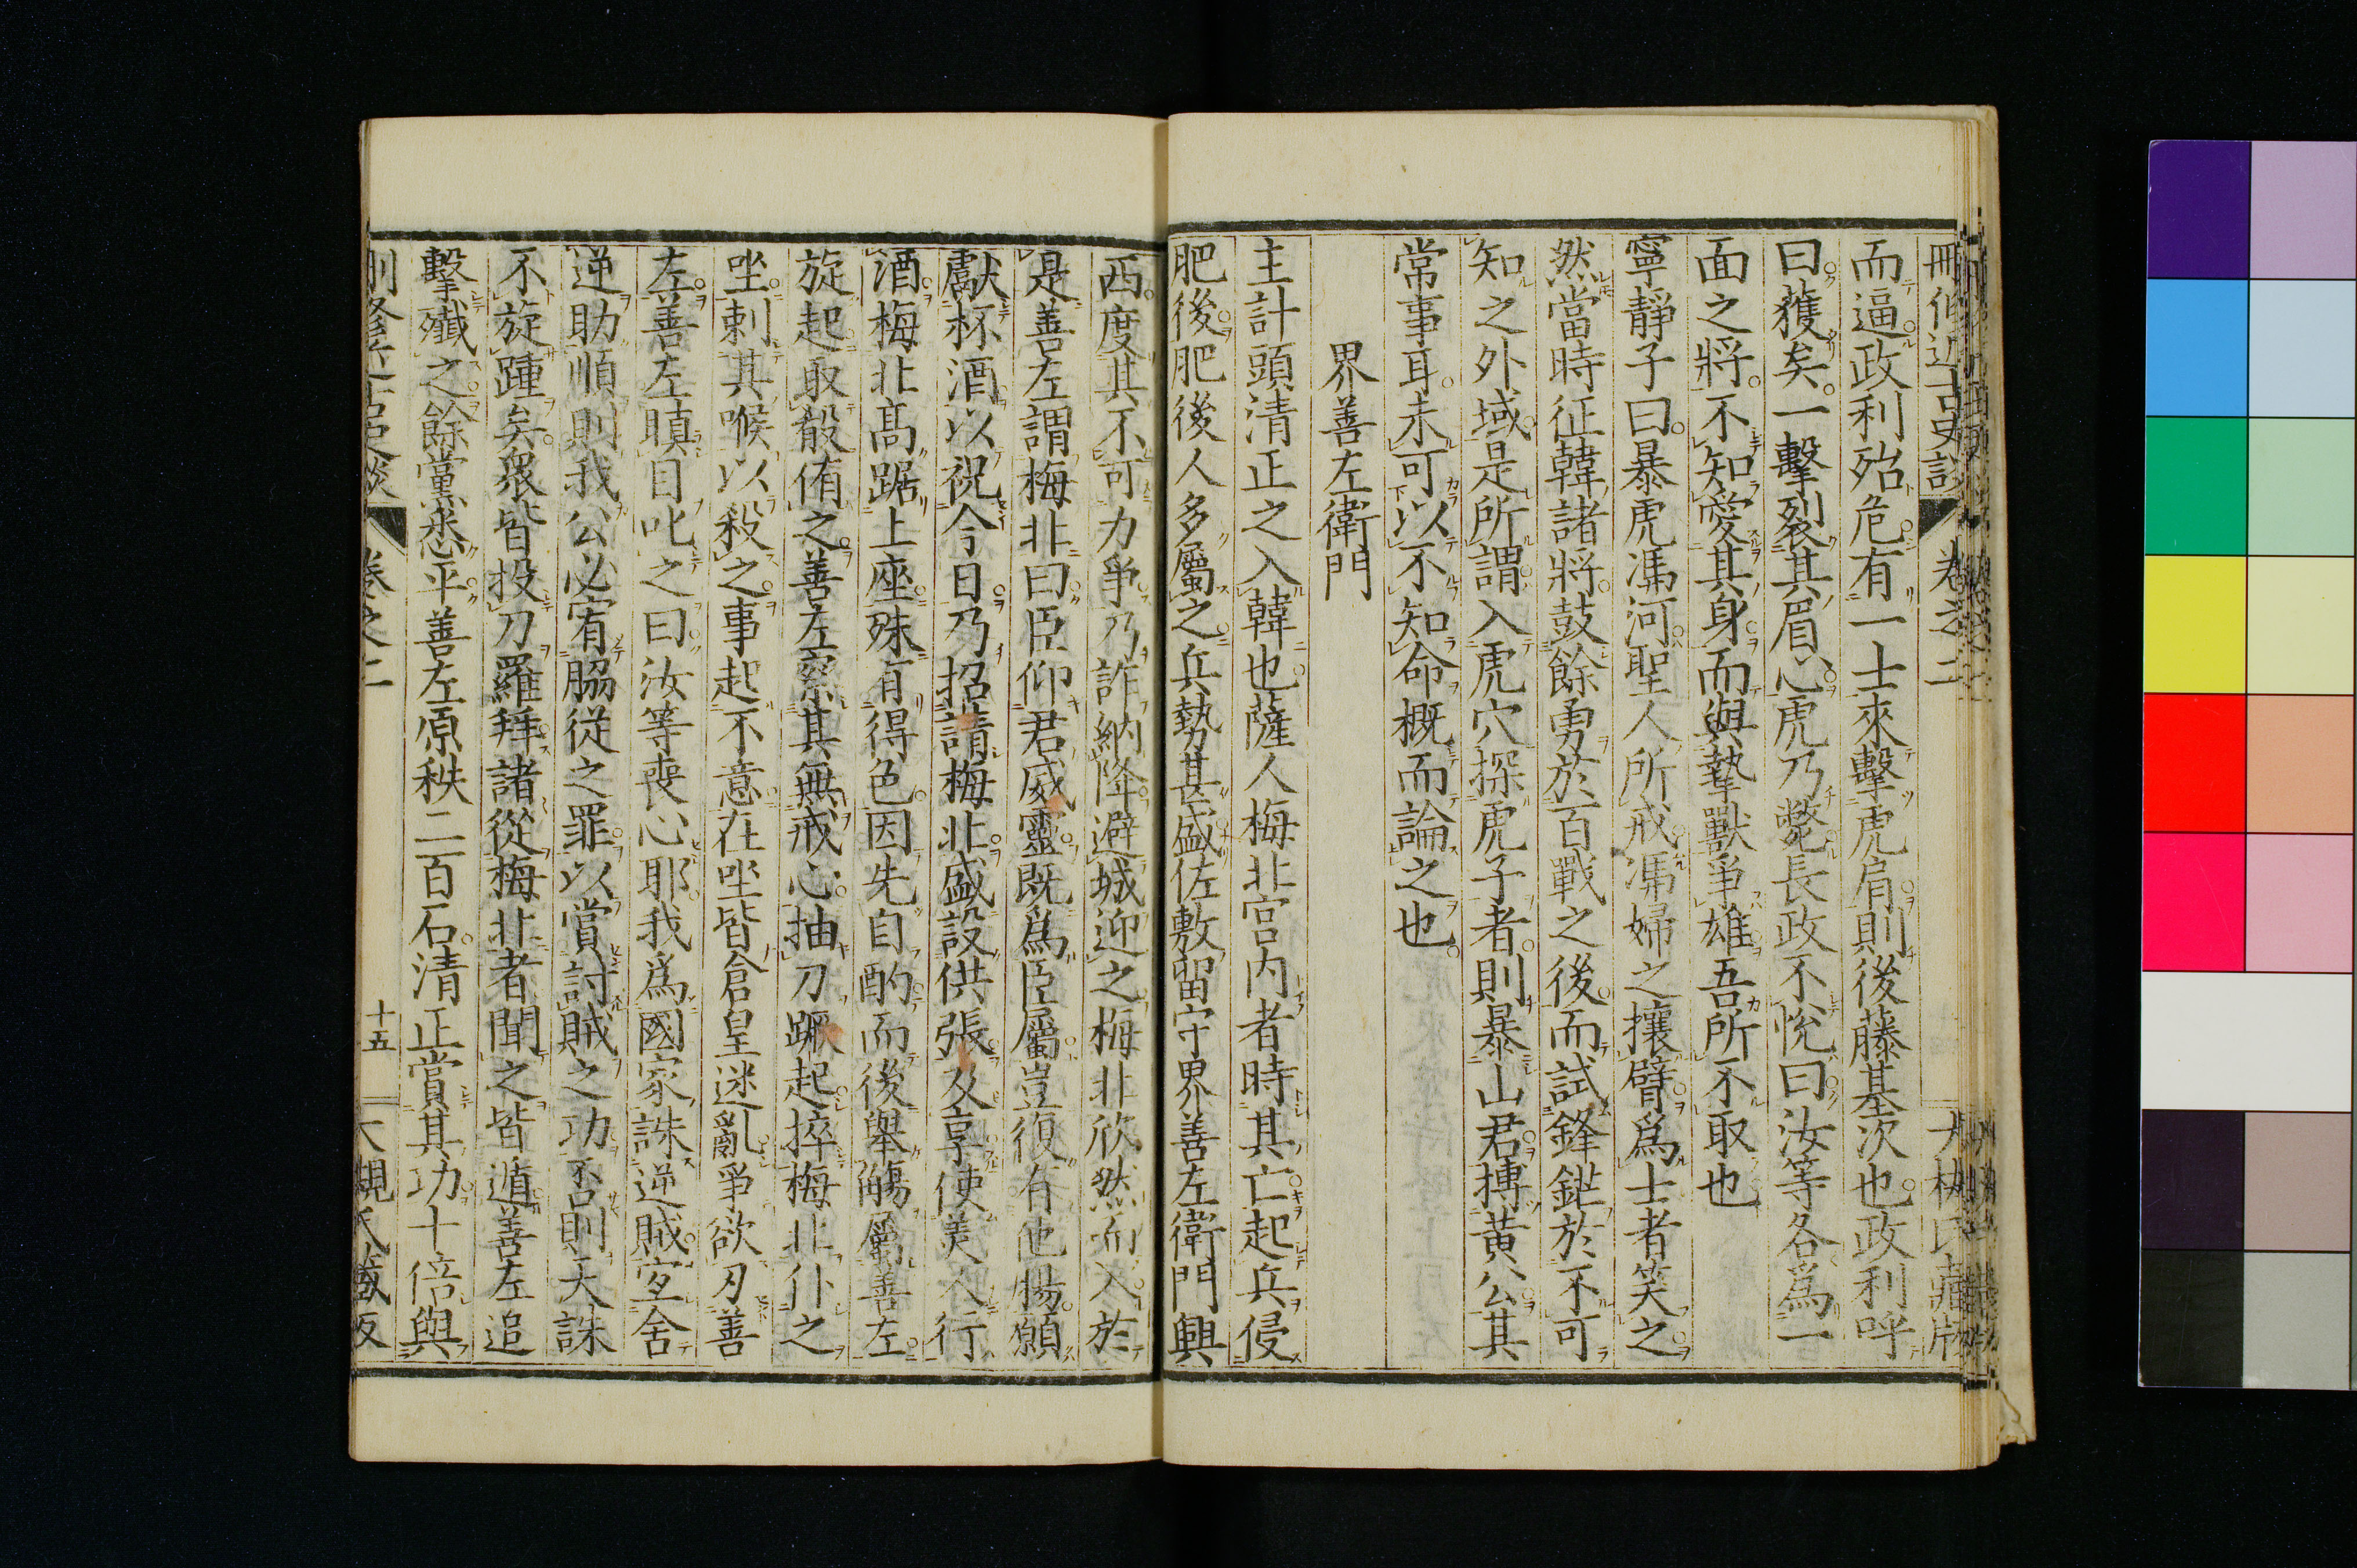 而逼政利殆危有一士來擊虎肩則後藤基次也政利呼
曰獲矣一擊裂其眉心虎乃斃長政不悅曰汝等各爲一
面之將不知愛其身而與摯獸爭雄吾所不取也
寧靜子曰暴虎馮河聖人所戒馮婦之攘臂爲士者笑之
然當時征韓諸將鼓餘勇於百戰之後而試鋒鋩於不可
知之外域是所謂入虎穴探虎子者則暴山君搏黃公其
常事耳未可以不知命概而論之也
界善左衛門
主計頭清正之入韓也薩人梅北宮內者時其亡起兵侵
肥後肥後人多屬之兵勢甚盛佐敷留守界善左衛門興
西度其不可力爭乃詐納降避城迎之梅北欣然而入於
是善左謂梅北曰臣仰君威靈既爲臣屬豈復有他腸願
獻杯酒以祝今日乃招請梅北盛設供張及享使美人行
酒梅北高踞上座殊有得色因先自酌而後擧觴屬善左
旋起取骰侑之善左察其無戒心抽刀蹶起捽梅北仆之
坐刺其喉以殺之事起不意在坐皆倉皇迷亂爭欲刃善
左善左瞋目叱之曰汝等喪心耶我爲國家誅逆賊宜舍
逆助順則我公必宥脇從之罪以賞討賊之功否則天誅
不旋踵矣衆皆投刀羅拜諸從梅北者聞之皆遁善左追
擊殲之餘黨悉平善左原秩二百石清正賞其功十倍與
卷之二
十五